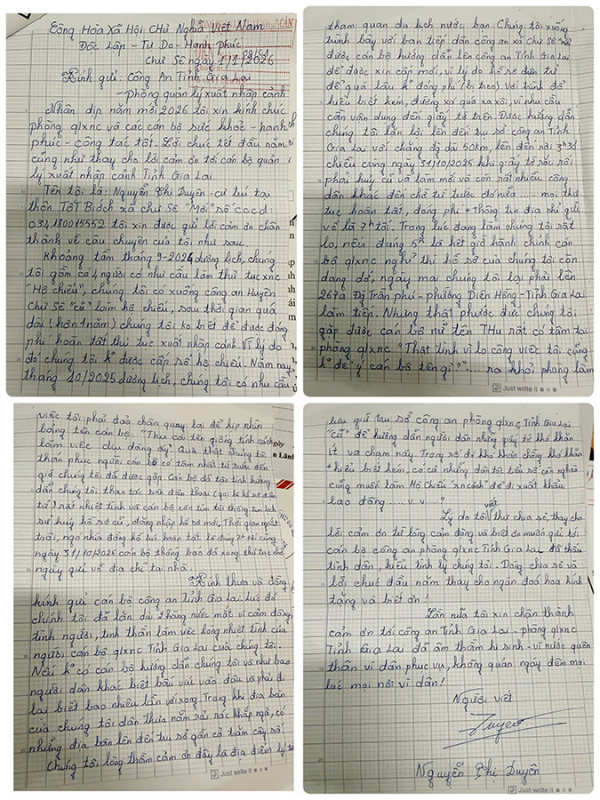 Cộng Hòa Xã Hội Chủ Nghĩa Việt Nam
Độc Lập - Tự Do - Hạnh phúc
Chư Sê ngày 1/1/2026
Kính gửi: Công An Tỉnh Gia Lai
- phòng quản lý xuất nhập cảnh
Nhân dịp năm mới 2026 tôi xin kính chúc
phòng qlxnc và các cán bộ sức khoẻ - hạnh
phúc - công tác tốt. Lời chúc tết đầu năm
cũng như thay cho lời cảm ơn tới cán bộ quản
lý xuất nhập cảnh Tỉnh Gia Lai.
Tên tôi là: Nguyễn Thị Duyên - cư trú tại
thôn TĐT Biách xã chư Sê "Mới" số c.c.c.d
034180015552 tôi xin được gửi lời cảm ơn chân
thành về câu chuyện của tôi như sau.
Khoảng tầm tháng 9-2024 dương lịch, chúng
tôi gồm có 4 người có nhu cầu làm thủ tục xnc
"Hộ chiếu", chúng tôi có xuống công an Huyện
Chư Sê "cũ" làm hộ chiếu, sau thời gian quá
dài (hơn 1 năm) chúng tôi ko biết để được đóng
phí hoàn tất thủ tục xuất nhập cảnh. Vì lý do
đó chúng tôi k° được cấp sổ hộ chiếu. Năm nay
tháng 10/2025 dương lịch, chúng tôi có nhu cầu đi
tham quan du lịch nước bạn. Chúng tôi xuống
trình bày với ban tiếp dân công an xã Chư Sê "mới"
được cán bộ hướng dẫn lên công an Tỉnh Gia Lai
để được xin cấp mới, vì lý do hồ sơ điện tử
để quá lâu k° đóng phí (bị treo). Với trình độ
hiểu biết kém, đường xá quá xa xôi, vì nhu cầu
cần vận dụng đến giấy tờ trên. Được hướng dẫn
chúng tôi lặn lội lên đến trụ sở công an Tỉnh
Gia Lai với chặng độ dài 50km, lên đến nơi 3h30
chiều cùng ngày 31/10/2025 khi giấy tờ rắc rối
phải huỷ cũ và làm mới và còn rất nhiều công
dân khác đến chờ từ trước đó nữa ... mọi thứ
tục hoàn tất, đóng phí + Thông tin địa chỉ gửi
về là 7h tối. Trong lúc đang làm chúng tôi rất
lo, nếu đúng 5h là hết giờ hành chính cán
bộ qlxnc nghỉ thì hồ sơ của chúng tôi còn
dang dở, ngày mai chúng tôi lại phải lên
267a Đg Trần phú - phường Diên Hồng - Tỉnh Gia Lai
làm tiếp. Nhưng thật phước đức chúng tôi
gặp được cán bộ nữ tên THu rất có tâm tại
phòng qlxnc "Thật tình vì lo công việc tôi cũng
k° để ý cán bộ tên gì?"... ra khỏi phòng làm
việc tôi phải đảo chân quay lại để kịp nhìn
bảng tên cán bộ. "Thu cái tên giống tính cách
làm việc dịu dàng ấy" Quả thật chúng tôi
thán phục người cán bộ có tâm nhất từ trước đến
giờ chúng tôi đã được gặp. Cán bộ đã tận tình hướng
dẫn chúng tôi thao tác trên điện thoại
rất nhiệt tình và cán bộ còn tìm tòi thông tin lịch
sử huỷ hồ sơ cũ, đăng nhập hồ sơ mới. Thời gian ngắt
trôi, ngó nhìn đồng hồ lúc hoàn tất là đúng 7h tối cùng
ngày 31/10/2025 cán bộ thông báo đã xong thủ tục chờ
ngày gửi về địa chỉ tại nhà.
Kính thưa và đồng
kính gửi cán bộ công an tỉnh Gia Lai. Lúc đó
chính tôi đã lăn dài 2 hàng nước mắt vì cảm động
tình người, tinh thần làm việc lòng nhiệt tình của
người cán bộ qlxnc Tỉnh Gia Lai của chúng tôi.
Nếu k° có cán bộ hướng dẫn chúng tôi và như bao
người dân khác biết bấu víu vào đâu và phải đi
lại biết bao nhiêu lần với xong. Trong khi địa bàn
của chúng tôi dân thưa nằm rải rác khắp ngả, có
những địa bàn lên đến trụ sở gần cả trăm cây số!
Chúng tôi lòng thầm cảm ơn đây là địa điểm lý
lưu giữ trụ sở công an phòng qlxnc Tỉnh Gia Lai
"cũ" để hướng dẫn người dân những giấy tờ khó khăn
ít va chạm này. Trong số đó khó khăn chồng khó khăn
+ hiểu biết kém, có cả những dân tộc thiểu số còn nghèo
cũng muốn làm Hộ Chiếu "xn cảnh" để đi xuất khẩu
lao động ..... v.v....?
Lý do tôi viết thư chia sẻ, thay cho
lời cảm ơn từ lòng cảm động và biết ơn muốn gửi tới
cán bộ công an phòng qlxnc Tỉnh Gia Lai đã thấu
tình dân, hiểu tình lý chúng tôi. Dòng chia sẻ và
lời chúc đầu năm thay cho ngàn đoá hoa kính
tặng và biết ơn!
Lần nữa tôi xin chân thành
cảm ơn tới công an Tỉnh Gia Lai - phòng qlxnc
Tỉnh Gia Lai đã âm thầm hi sinh - vì nước quên
thân vì dân phục vụ, không quản ngày đêm mọi
lúc mọi nơi vì dân!
Người viết
Duyên
Nguyễn Thị Duyên
Just write it
Just write it
Just write it